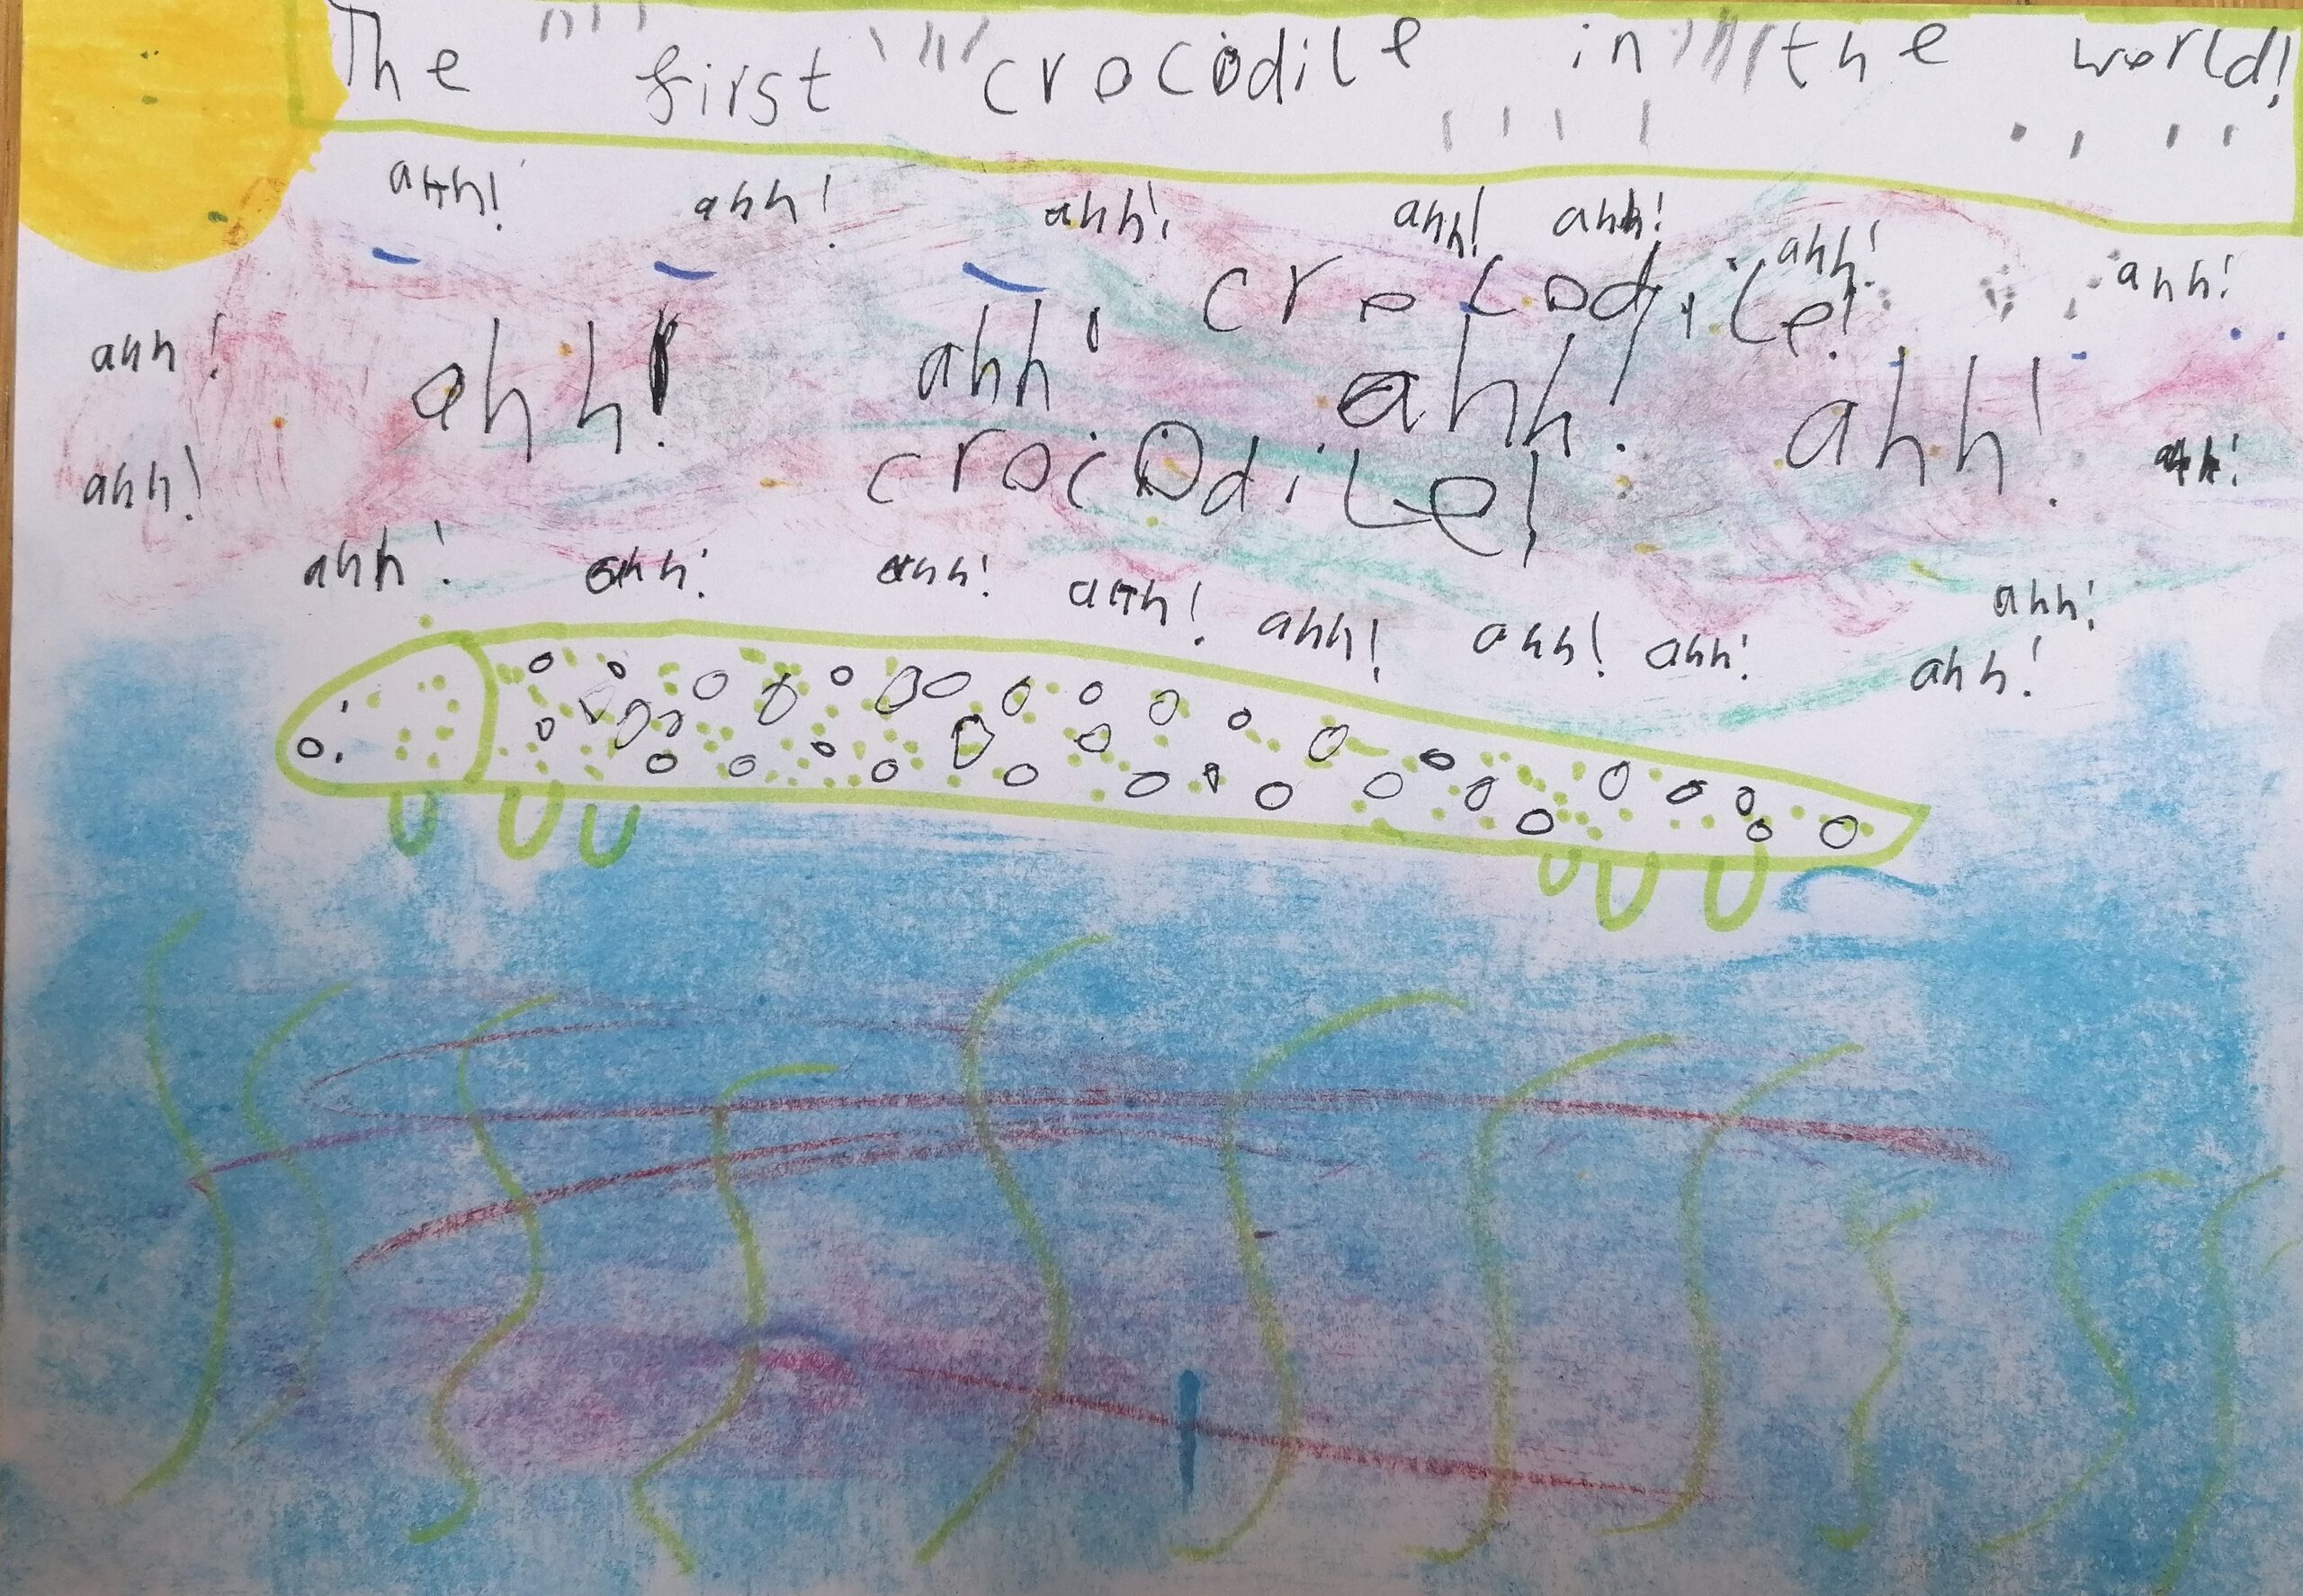 The first crocodile in the world!
ahh! ahh! ahh! ahh! ahh! ahh! ahh!
crocodile!
ahh! ahh! ahh! ahh! ahh!
crocodile!
ahh! ahh!
ahh! ahh! ahh! ahh! ahh! ahh! ahh! ahh!
ahh!